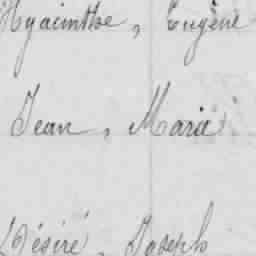 Hyacinthe, Eugène
Jean, Marie
Désiré, Joseph